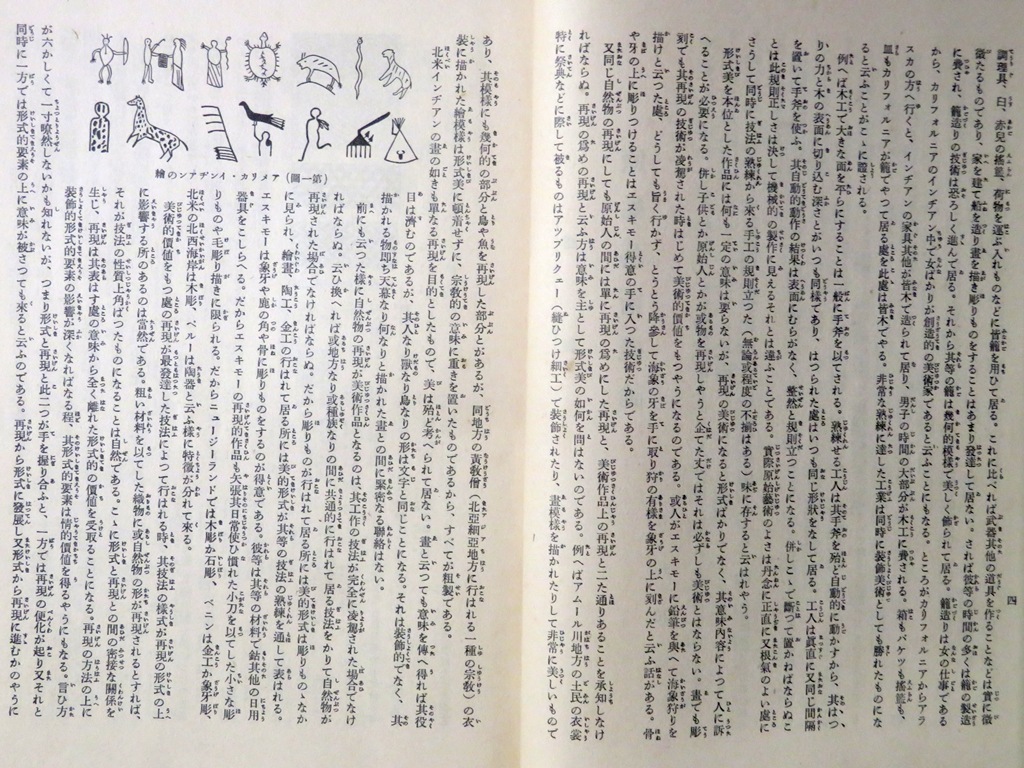 四
調理具、臼、赤兒の搖籃、荷物を運ぶ入れものなどに皆籠を用ひて居る。これに比べれば武器其他の道具を作ることなどは實に微
徵たるものであり、家を建て船を造り畫を描き彫りものをすることはあまり發達して居ない。されば彼等の時間の多くは籠の製造
に費され、籠造りの技術は恐ろしく進んで居る。それから其等の籠は幾何的模樣で美しく飾られて居る。籠造りは女の仕事である
から、カリフォルニアのインヂアン中で女ばかりが創造的の美術家であると云ふことにもなる。ところがカリフォルニアからアラ
スカの方へ行くと、インヂアンの家具其他が皆木で造られて居り、男子の時間の大部分が木工に費される。箱もバケツも搖籃も、
皿もカリフォルニアが籠でやつて居る處を此處は皆木でやる。非常な熟練に達した工業は同時に裝飾美術としても勝れたものにな
ると云ふことがこゝに證される。
例へば木工で大きな面を平らにすることは一般に手斧を以てされる。熟練せる工人は其手斧を殆ど自動的に動かすから、其はつ
りの力と木の表面に切り込む深さとがいつも同樣であり、はつられた處はいつも同じ形狀をなして居る。工人は眞直に又同じ間隔
を置いて手斧を使ふ。其自動的動作の結果は表面にむらがなく、整然と規則立つことになる。併しこゝで斷つて置かねばならぬこ
とは此規則正しさは決して機械的の製作に見えるそれとは違ふことである。實際原始藝術のよさは丹念に正直に又根氣のよい處に
さうして同時に技法の熟練から來る手工の規則立つた(無論或程度の不揃はある)味に存すると云はれやう。
形式美を本位とした作品には何も一定の意味は要らないが、再現の美術になると形ばかりでなく、其意味內容によつて人に訴
へることが必要になる。併し子供とか原始人とかが或物を再現しやうと企て丈ではそれは必ずしも美術とはならない。畫でも彫
刻でも其再現の技術が凌駕された時はじめて美術的價値をもつやうになるのである。或人がエスキモーに鉛筆を與へて海象狩りを
描けと云つた處、どうしても旨く行かず、とうとう降參して海象の牙を手に取り狩の有樣を象牙の上に刻んだと云ふ話がある。骨
や牙の上に彫りつけることはエスキモー得意の手に入つた技術だからである。
又同じ自然物の再現にしても原始人の間には單に再現の爲めにした再現と、美術作品上の再現と二た通りあることを承知しなけ
ればならぬ。再現の爲めの再現と云ふ方は意味を主として形式美の如何を問はないのである。例へばアムール川地方の土民の衣裳
特に祭典などに際して被るものはアップリクェー(縫ひつけ細工)で裝飾されたり、畫模樣を描かれたりして非常に美しいもので
あり、其模樣にも幾何的の部分と鳥や魚を再現した部分とがあるが、同地方の黃敎僧(北亞細亞地方に行はれる一種の宗敎)の衣
裝に描かれた繪模樣は形式美に頓着せずに、宗敎的の意味に重きを置いたものであるから、すべてが粗製である。
北米インヂアンの畫の如きも單なる再現を目的としたもので、美は殆ど考へられて居ない。畫と云つても意味を傳へ得れば其役
目は濟むのであるが、其人なり獸なり鳥なりの形は文字と同じことになる。それは裝飾的でなく、其
描かれる物卽ち天幕なり何なりと描かれた畫との間に緊密なる聯絡はない。
前にも云つた樣に自然物の再現が美術作品となるのは、其工作の技法が完全に凌駕された場合でなけ
ればならぬ。云ひ換へれば或地方なり或種族なりの間に共通的に行はれて居る技法をかりて自然物が
再現された場合でなければならぬ。だから彫りものが行はれて居る所には美的形式は彫りものゝなか
に見られ、繪畫、陶工、金工の行はれて居る所には美的形式が其等の技法の熟練を通して表はれる。
エスキモーは象牙や鹿の角や骨に彫りものをするのが得意である。彼等は其等の材料で銛其他の日用
器具をこしらへる。だからエスキモーの再現的作品も矢張其日常使ひ慣れた小刀を以てした小さな彫
りものや毛彫り描きに限られる。だからニュージーランドでは木彫か石彫、ベニンは金工か象牙彫、
北米の北西海岸は木彫、ペルーは陶器と云ふ樣に特徵が分れて來る。
美術的價値をもつ處の再現が最發達した技法によつて行はれる時、其技法の樣式が再現の形式の上
に影響する所のあるのは當然である。粗い材料を以てした織物に或自然物の形が再現されるとすれば、
それが技法の性質上角ばつたものになることは自然である。こゝに形式と再現との間の密接な關係を
生じ、再現は其表はす處の意味から全く離れた形式的の價値を受取ることになる。再現の方法の上に
裝飾的形式的要素の影響が深くなればなる程、其形式的要素は情的價値を得るやうにもなる。言ひ方
が六かしくて一寸暸然しないかも知れないが、つまり形式と再現と此二つが手を握り合ふと、一方では再現の便化が起り又それと
同時に一方では形式的要素の上に意味が被さつても來ると云ふのである。再現から形式に發展し又形式から再現に進むかのやうに
(第一圖)アメリカ・インヂアンの繪